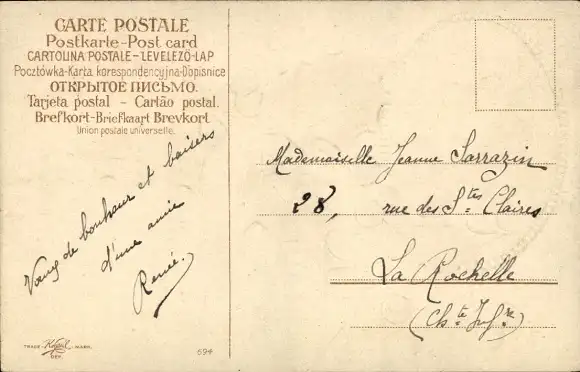 CARTE POSTALE
Postkarte-Post card
CARTOLINA POSTALE-LEVELEZÖ-LAP
Pocztówka-Karta korespondencyjna-Dopisnice
ОТКРЫТОЕ ПИСЬМО.
Tarjeta postal - Cartão postal.
Brefkort-Briefkaart Brevkort
Union postale universelle.
Vœux de bonheur et baisers
d'une amie
Renée.
Mademoiselle Jeanne Sarrazin
28, rue des Stes Claires
La Rochelle
(Chte Infre)
TRADE MARK.
694